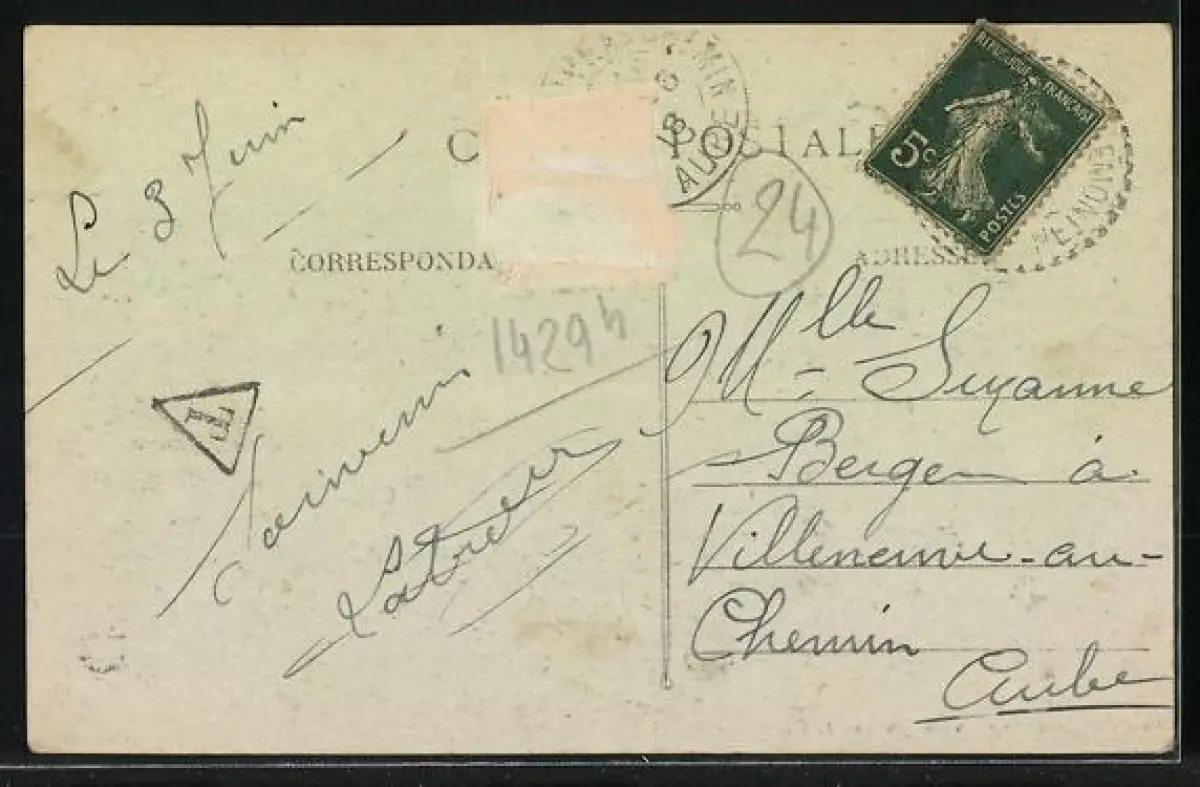 Le 3 Juin
CARTE POSTALE
CORRESPONDA
ADRESSE
24
1429h
T
Mlle Suzanne
Berger à
Villeneuve-au-
Chemin
Aube
REPUBLIQUE FRANÇAISE
5c
POSTES
CHEMIN
AUBE